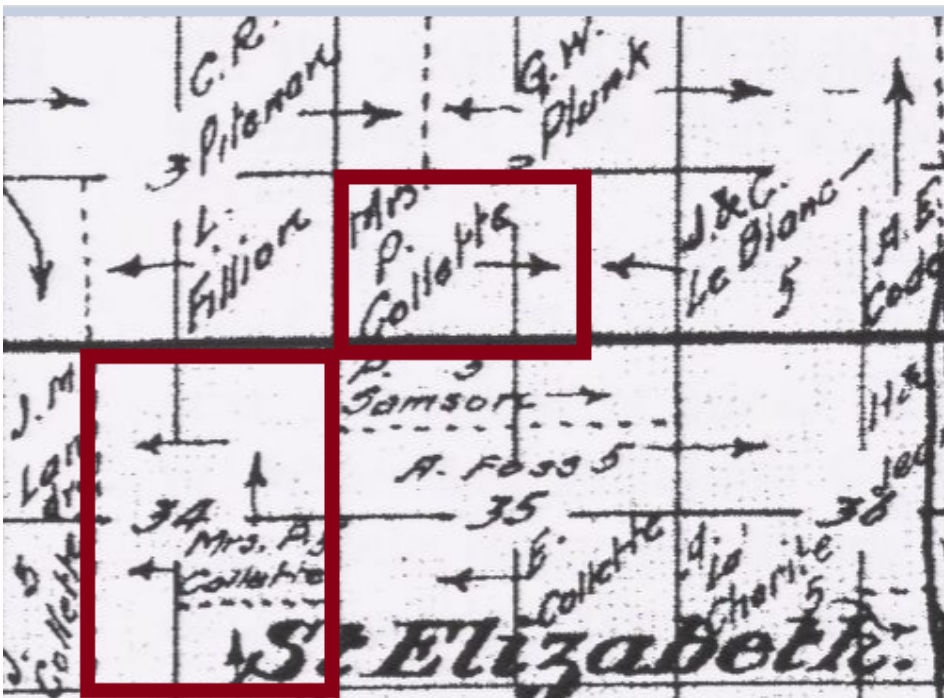 C.R.
Piteman
G.W.
Plunk
3
2
L.
Fillion
Mrs.
P.
Collette
J. & C.
Le Blanc
5
A.E.
J.M.
P. 5
Samson
A. Foss 5
34
35
36
Mrs. P.
Collette
5
J.
Collette
E.
Collette
Cherite
5
St Elizabeth.